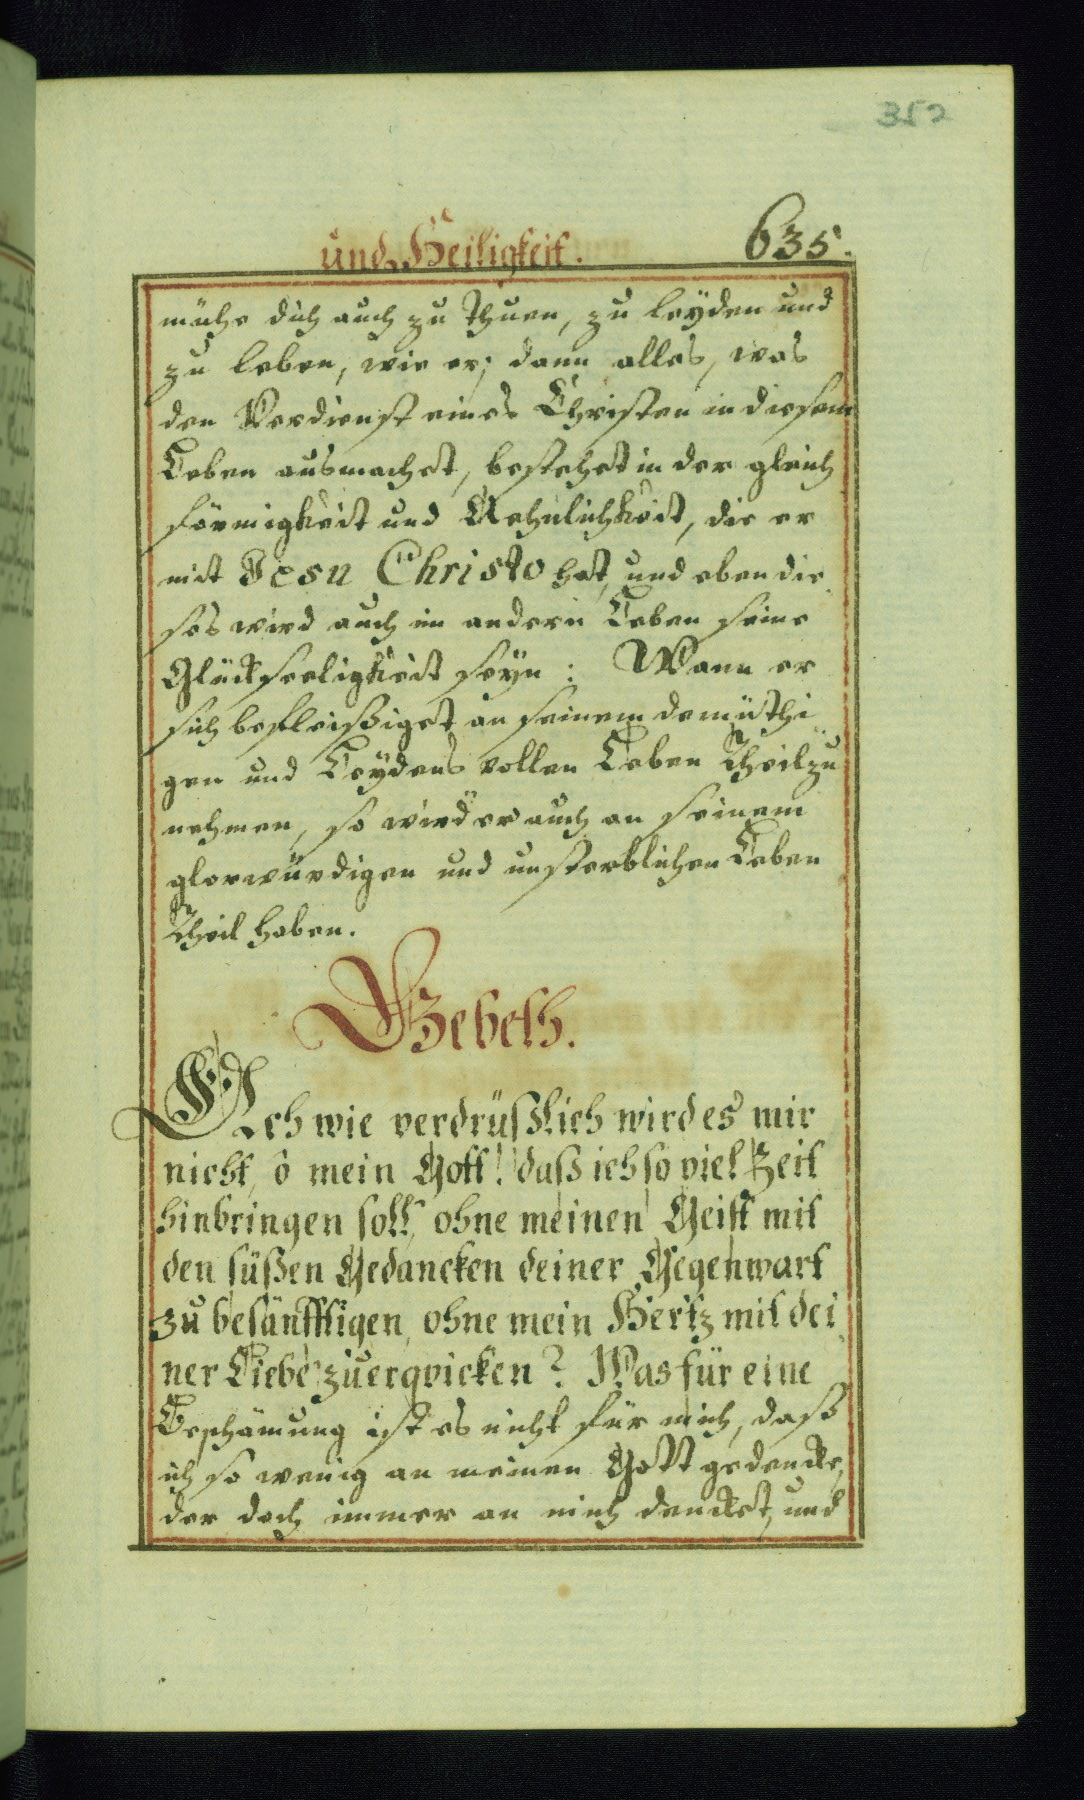 352
und Heiligkeit. 635.
mühe dich auch zu thuen, zu leyden und
zu leben, wie er; dann alles, was
den Verdienst eines Christen in diesem
Leben ausmachet, bestehet in der gleich
förmigkeit und Aehnlichkeit, die er
mit Jesu Christo hat, und eben die
ses wird auch im andern Leben seine
Glückseeligkeit seyn: Wann er
sich befleißiget an seinem demüthi
gen und Leydens vollen Leben Theil zu
nehmen, so wird er auch an seinem
glorwürdigen und unsterblichen Leben
Theil haben.
Gebeth.
Ach wie verdrüßlich wird es mir
nicht, ô mein Gott! daß ich so viel Zeit
hinbringen soll, ohne meinen Geist mit
den süßen Gedancken deiner Gegenwart
zu besänfftigen, ohne mein Hertz mit dei
ner Liebe zu erqvicken? Was für eine
Beschämung ist es nicht für mich, daß
ich so wenig an meinen Gott gedencke,
der doch immer an mich dencket, und